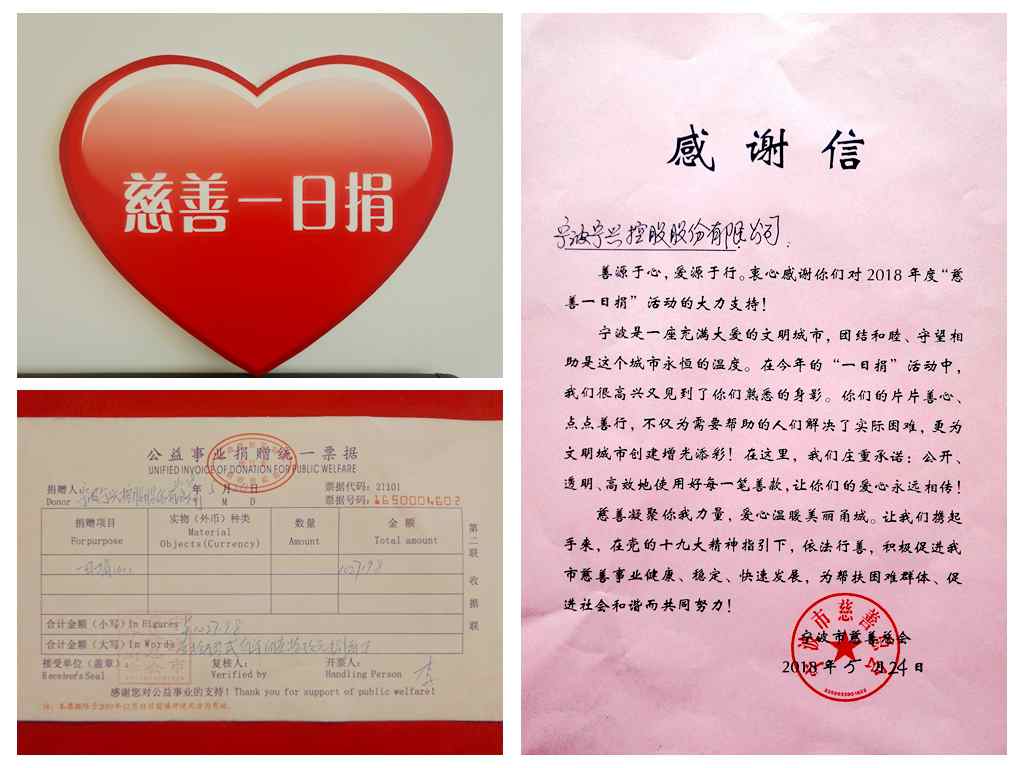 慈善一日捐
公益事业捐赠统一票据
UNIFIED INVOICE OF DONATION FOR PUBLIC WELFARE
捐赠人 年 5 月 日 票据代码: 27101
Donor Y M D 票据号码: 1650004602
捐赠项目 实物（外币）种类 数量 金 额
For purpose Material Objects(Currency) Amount Total amount
第二联 收据联
合计金额（小写）In Figures
合计金额（大写）In Words
接受单位（盖章）: 复核人: 开票人:
Receiver's Seal Verified by Handling Person
感谢您对公益事业的支持! Thank you for support of public welfare!
感谢信
宁波宁兴控股股份有限公司.
善源于心，爱源于行。衷心感谢你们对 2018 年度“慈
善一日捐”活动的大力支持！
宁波是一座充满大爱的文明城市，团结和睦、守望相
助是这个城市永恒的温度。在今年的“一日捐”活动中，
我们很高兴又见到了你们熟悉的身影。你们的片片善心、
点点善行，不仅为需要帮助的人们解决了实际困难，更为
文明城市创建增光添彩！在这里，我们庄重承诺：公开、
透明、高效地使用好每一笔善款，让你们的爱心永远相传！
慈善凝聚你我力量，爱心温暖美丽甬城。让我们携起
手来，在党的十九大精神指引下，依法行善，积极促进我
市慈善事业健康、稳定、快速发展，为帮扶困难群体、促
进社会和谐而共同努力！
宁波市慈善总会
2018 年 5 月 24 日